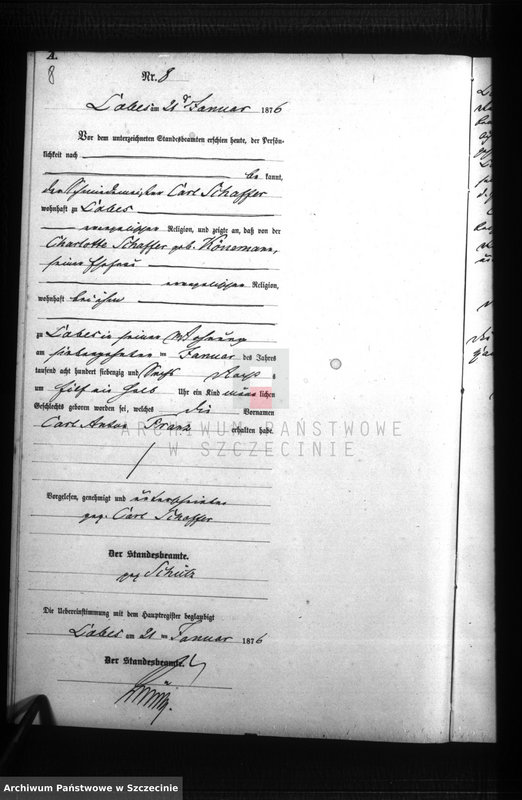 A.
8
Nr. 8
Labes am 21 Januar 1876
Vor dem unterzeichneten Standesbeamten erschien heute, der Persön-
lichkeit nach
be kannt,
der Schmiedemeister Carl Schaffer
wohnhaft zu Labes
evangelischer Religion, und zeigte an, daß von der
Charlotte Schaffer geb. Hönemann,
seiner Ehefrau
evangelischer Religion,
wohnhaft bei ihm
zu Labes in seiner Wohnung
am siebenzehnten ten Januar des Jahres
tausend acht hundert siebenzig und sechs Nachts
um Uhr ein Kind männlichen
Geschlechts geboren worden sei, welches die Vornamen
Carl Anton Franz erhalten habe.
Vorgelesen, genehmigt und unterschrieben
gez. Carl Schaffer
Der Standesbeamte.
gez Schütz
Die Uebereinstimmung mit dem Hauptregister beglaubigt
Labes am 21 ten Januar 1876
Der Standesbeamte.
ARCHIWUM PAŃSTWOWE
W SZCZECINIE
Archiwum Państwowe w Szczecinie